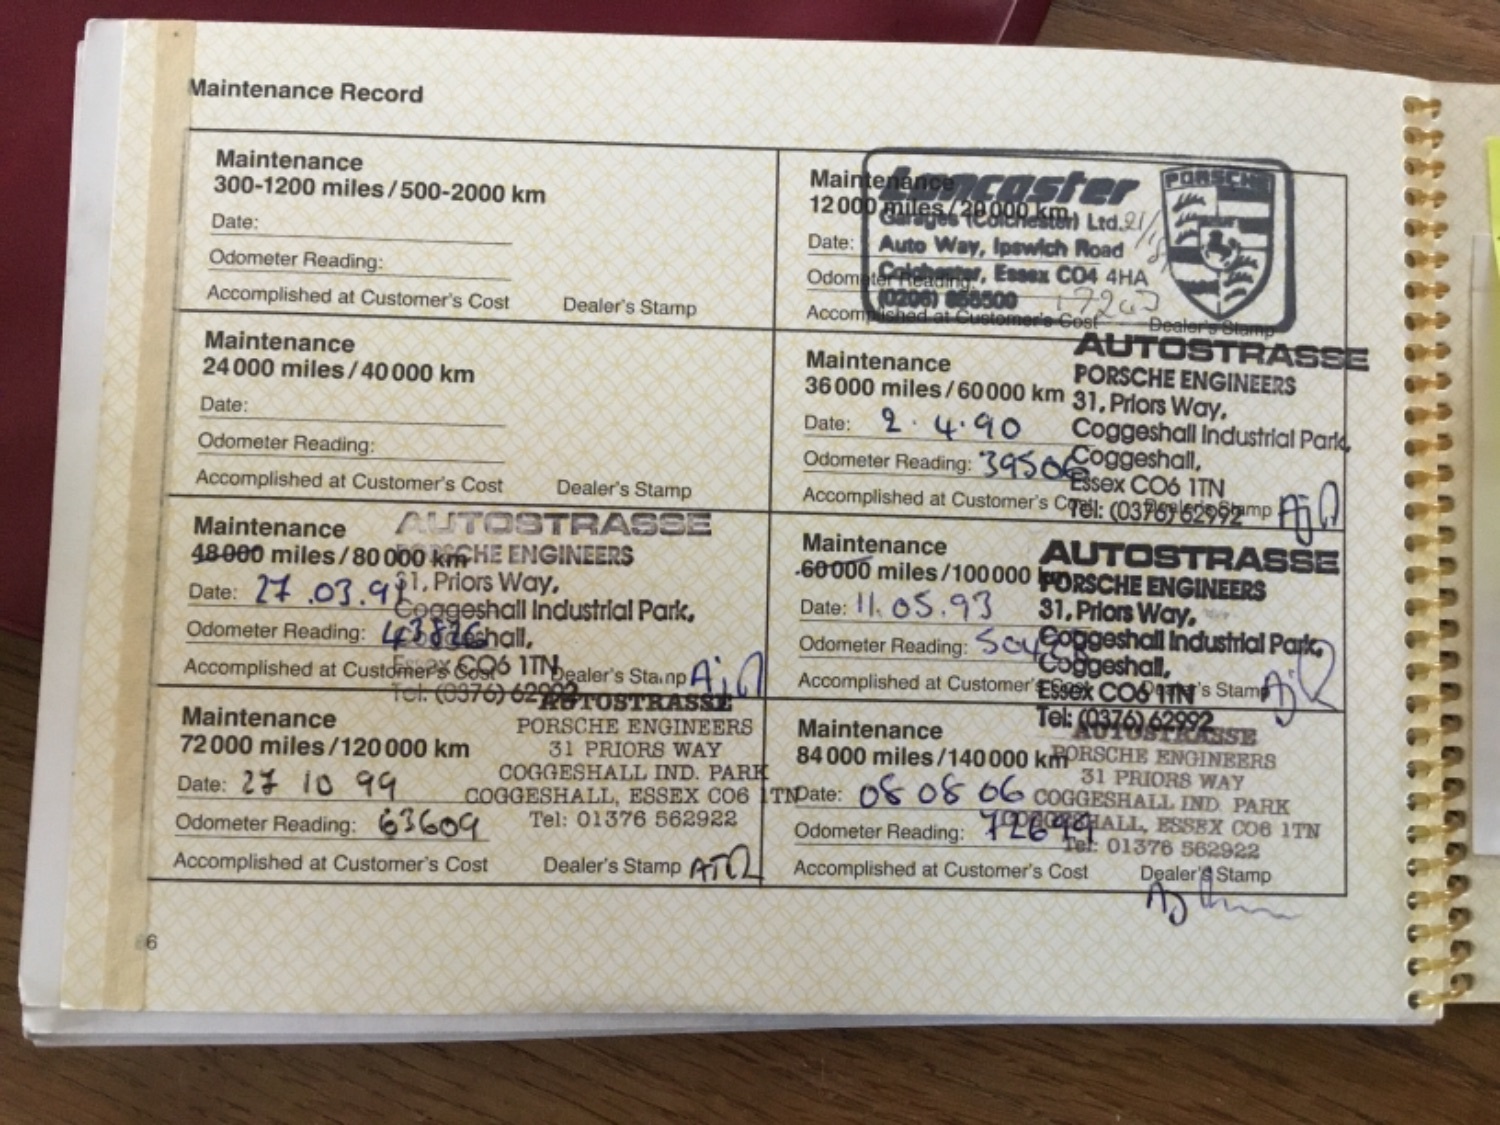 Maintenance Record
Maintenance
300-1200 miles / 500-2000 km
Date:
Odometer Reading:
Accomplished at Customer's Cost Dealer's Stamp
Maintenance
12 000 miles / 20 000 km
Date:
Odometer Reading:
Accomplished at Customer's Cost Dealer's Stamp
Lancaster
Garages (Colchester) Ltd.
Auto Way, Ipswich Road
Colchester, Essex CO4 4HA
(0206) 855500
PORSCHE
Maintenance
24 000 miles / 40 000 km
Date:
Odometer Reading:
Accomplished at Customer's Cost Dealer's Stamp
Maintenance
36 000 miles / 60 000 km
Date: 2.4.90
Odometer Reading:
Accomplished at Customer's Cost Dealer's Stamp
AUTOSTRASSE
PORSCHE ENGINEERS
31, Priors Way,
Coggeshall Industrial Park,
Coggeshall,
Essex CO6 1TN
Tel: (0376) 62992
Maintenance
48 000 miles / 80 000 km
Date: 27.03.91
Odometer Reading:
Accomplished at Customer's Cost Dealer's Stamp
AUTOSTRASSE
PORSCHE ENGINEERS
31, Priors Way,
Coggeshall Industrial Park,
Coggeshall,
Essex CO6 1TN
Tel: (0376) 62992
Maintenance
60 000 miles / 100 000 km
Date: 11.05.93
Odometer Reading:
Accomplished at Customer's Cost Dealer's Stamp
AUTOSTRASSE
PORSCHE ENGINEERS
31, Priors Way,
Coggeshall Industrial Park,
Coggeshall,
Essex CO6 1TN
Tel: (0376) 62992
Maintenance
72 000 miles / 120 000 km
Date: 27 10 99
Odometer Reading: 63609
Accomplished at Customer's Cost Dealer's Stamp
AUTOSTRASSE
PORSCHE ENGINEERS
31 PRIORS WAY
COGGESHALL IND. PARK
COGGESHALL, ESSEX CO6 1TN
Tel: 01376 562922
Maintenance
84 000 miles / 140 000 km
Date: 08 08 06
Odometer Reading: 72699
Accomplished at Customer's Cost Dealer's Stamp
AUTOSTRASSE
PORSCHE ENGINEERS
31 PRIORS WAY
COGGESHALL IND. PARK
COGGESHALL, ESSEX CO6 1TN
Tel: 01376 562922
6